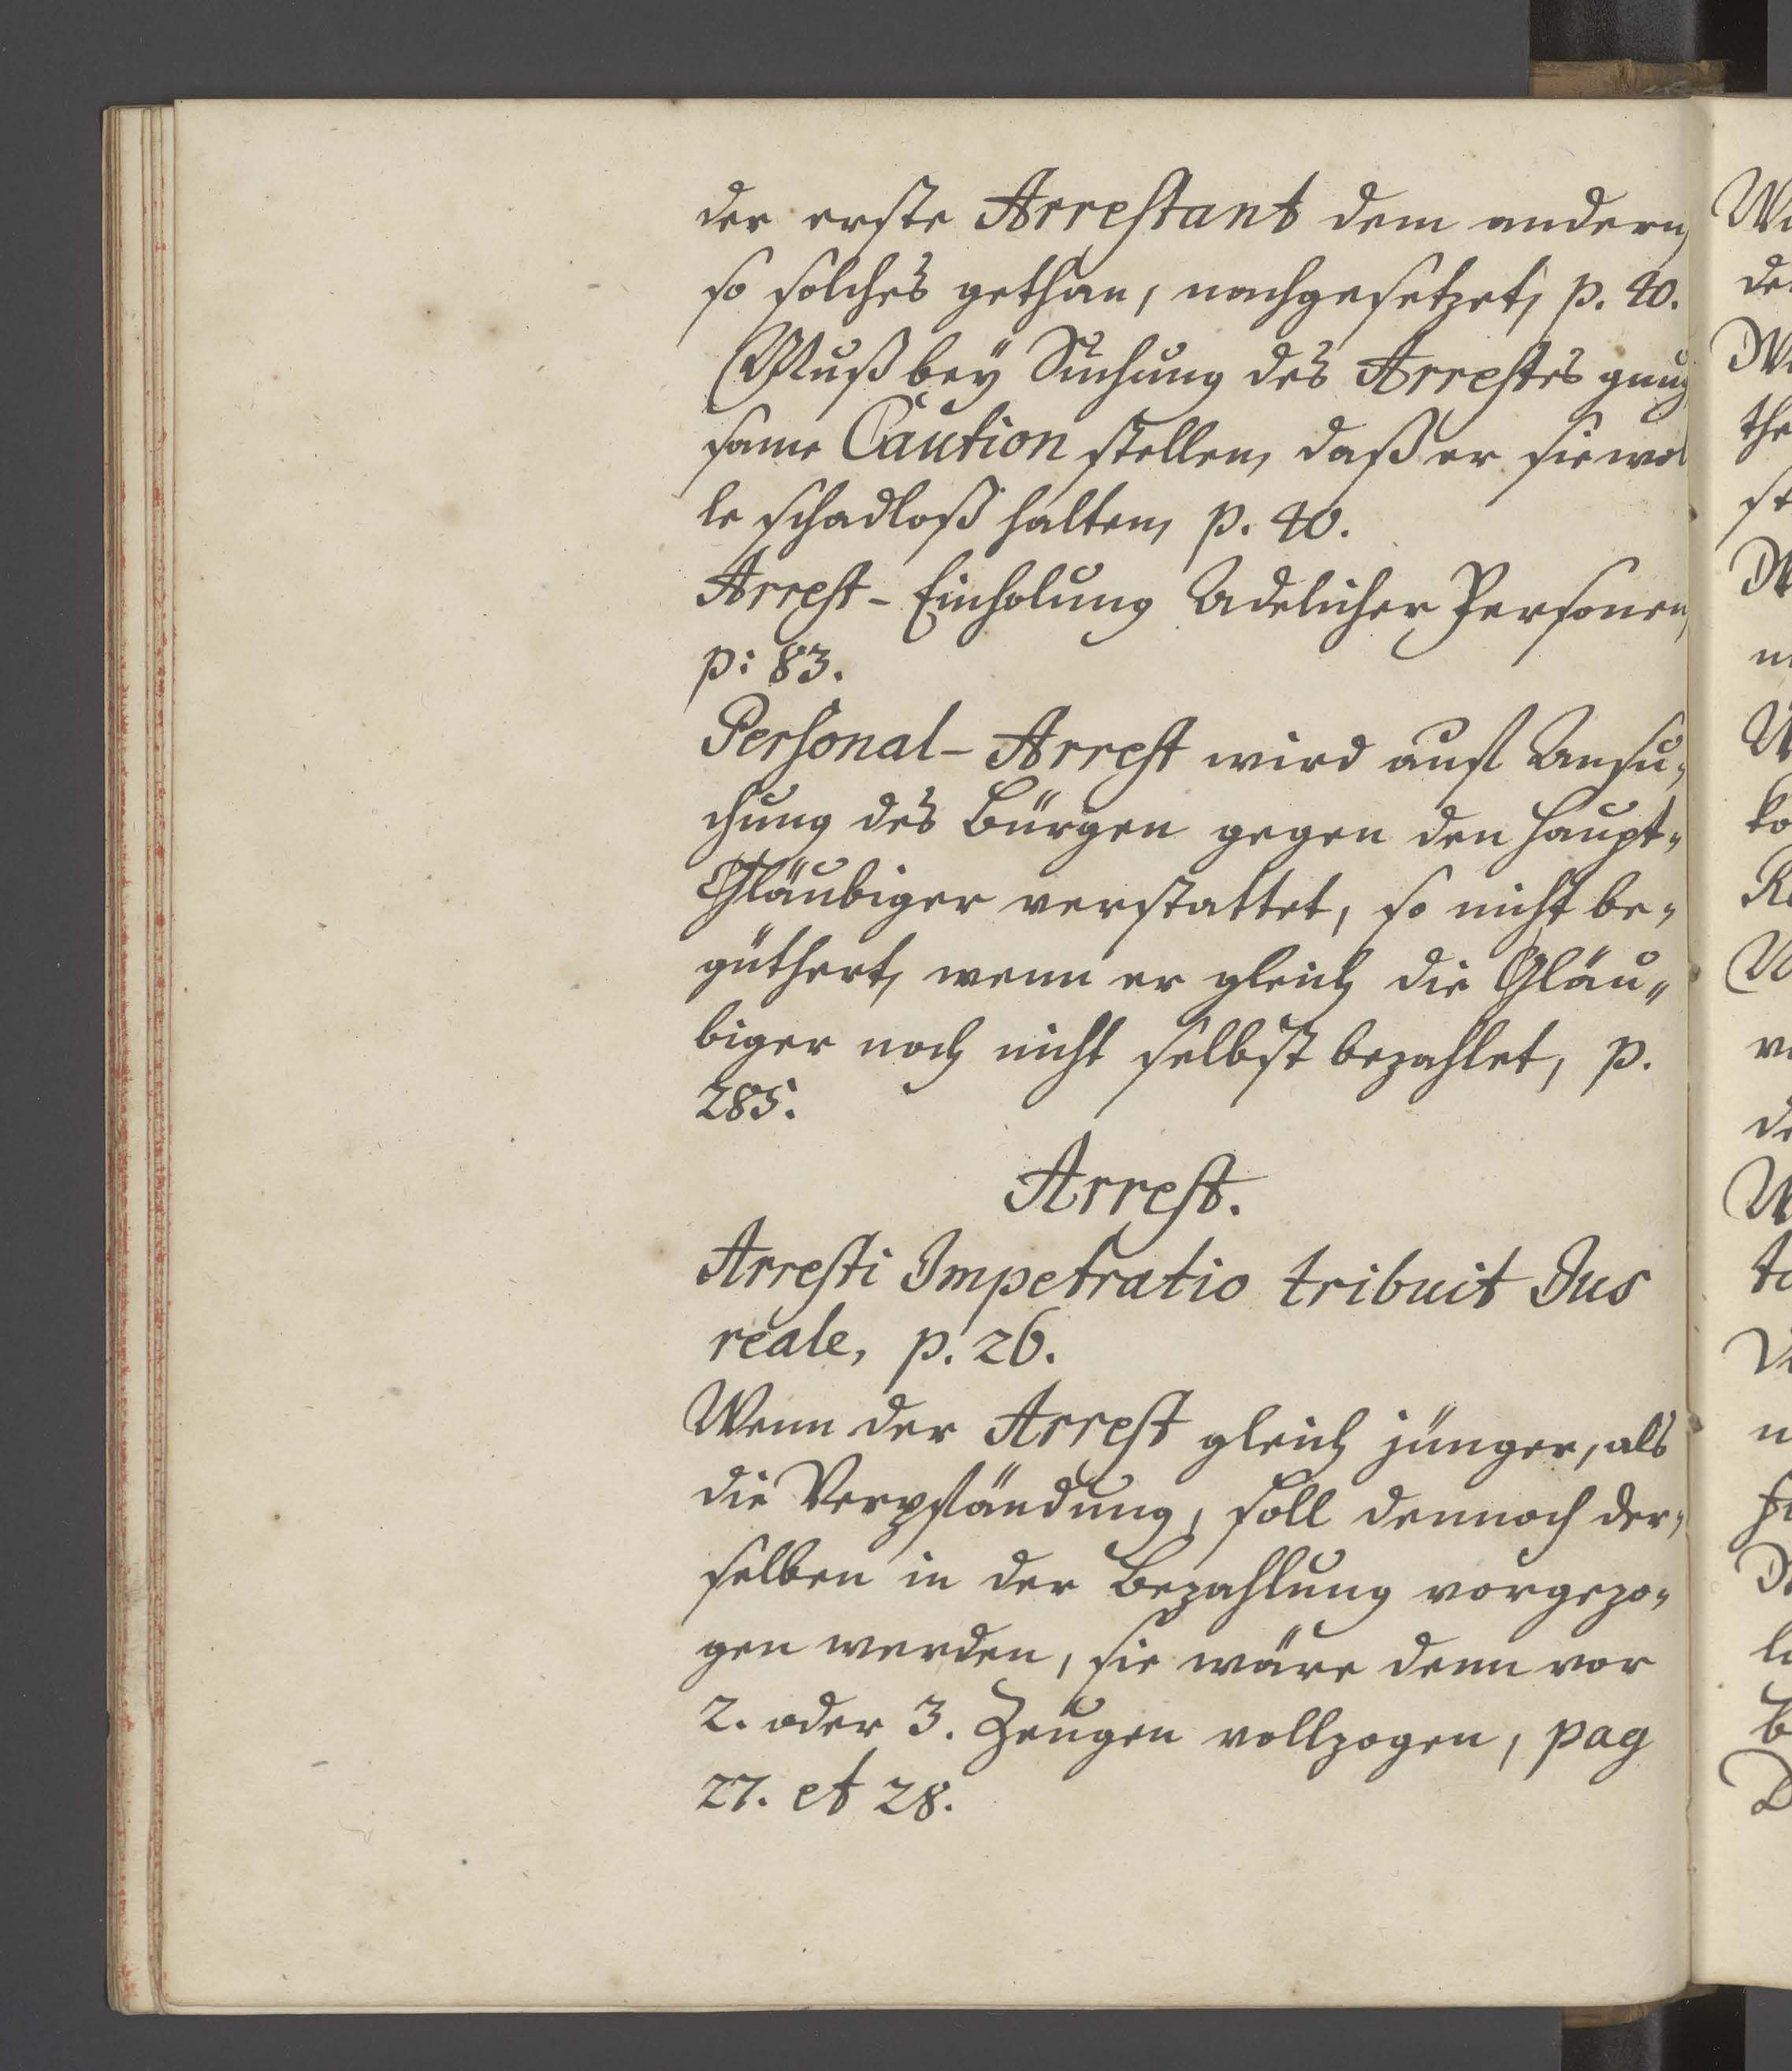 der erste Arrestant dem andern,
so solches gethan, nachgesetzet, p. 40.
Muß bey Suchung des Arrestes gnug
same Caution stellen, daß er sie wol
le schadloß halten, p. 40.
Arrest-Einholung Adelicher Personen,
p: 83.
Personal-Arrest wird auf Ansu„
chung des Bürgen gegen den Haupt„
Gläubiger verstattet, so nicht be„
güthert, wenn er gleich die Gläu„
biger noch nicht selbst bezahlet, p.
285.
Arrest.
Arresti Impetratio tribuit Jus
reale, p. 26.
Wenn der Arrest gleich jünger, als
die Verpfändung, soll dennoch der„
selben in der Bezahlung vorgezo„
gen werden, sie wäre denn vor
2. oder 3. Zeugen vollzogen, pag
27. et 28.